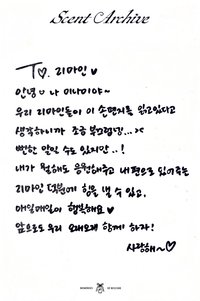 Scent Archive
To. 리마인♡
안녕♡ 나 미나미야~
우리 리마인들이 이 손편지를 읽고있다고
생각하니까 조금 부끄럽넹...><
뻔한 말일 수도 있지만..!
내가 뭘해도 응원해주고 내편으로 있어주는
리마인 덕분에 힘을 낼 수 있고,
매일매일이 행복해요♡
앞으로도 우리 오래오래 함께 하자!
사랑해~♡